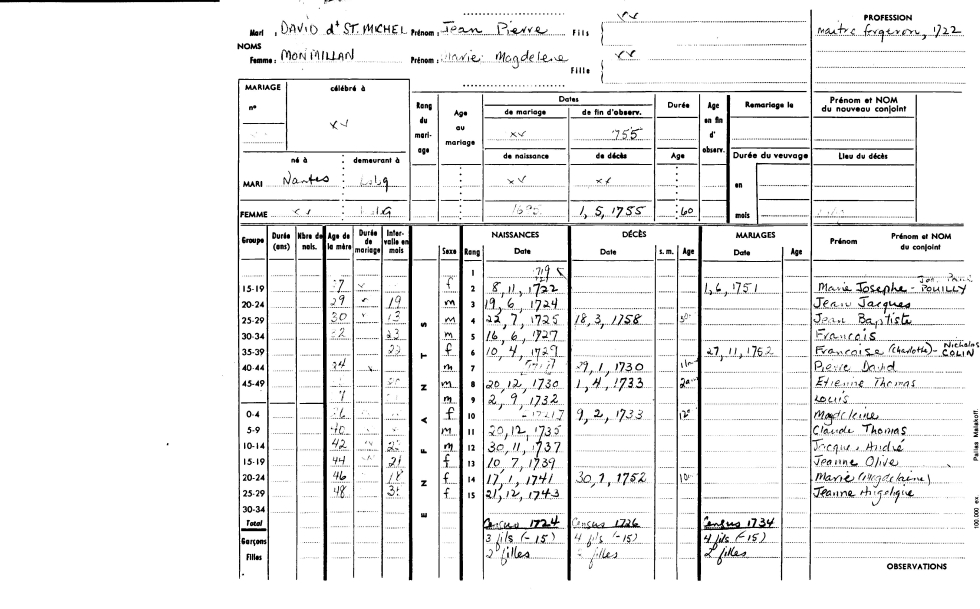 Mari : DAVID dt ST. MICHEL Prénom : Jean Pierre Fils
PROFESSION
maitre forgeron, 1722
NOMS
Femme : MONMILLAN Prénom : Marie Magdelene Fille
MARIAGE célébré à
n°
Rang du mariage
Age au mariage
Dates
de mariage de fin d'observ.
xx 1755
Durée
Age en fin d'observ.
Remariage le
Prénom et NOM du nouveau conjoint
né à demeurant à
de naissance de décès
Age
Durée du veuvage
Lieu du décès
MARI Nantes Lsbg xx xx
en
FEMME xx Lsbg 1695 1, 5, 1755 60
mois
Groupe Durée (ans) Nbre de nais. Age de la mère Durée de mariage Intervalle en mois
ENFANTS
Sexe Rang NAISSANCES Date DÉCÈS Date s. m. Age MARIAGES Date Age Prénom Prénom et NOM du conjoint
1
15-19 27 f 2 8, 11, 1722 1, 6, 1751 Marie Josephe - POUILLY
20-24 29 19 m 3 19, 6, 1724 Jean Jacques
25-29 30 13 m 4 22, 7, 1725 18, 3, 1758 Jean Baptiste
30-34 32 23 m 5 16, 6, 1727 Francois
35-39 22 f 6 10, 4, 1729 27, 11, 1752 Francoise (Charlotte) - Nicholas COLIN
40-44 m 7 29, 1, 1730 Pierre David
45-49 m 8 20, 12, 1730 1, 4, 1733 Etienne Thomas
m 9 2, 9, 1732 Louis
0-4 f 10 9, 2, 1733 Magdeleine
5-9 40 m 11 20, 12, 1735 Claude Thomas
10-14 42 m 12 30, 11, 1737 Jacques André
15-19 44 f 13 10, 7, 1739 Jeanne Olive
20-24 46 18 f 14 17, 1, 1741 30, 1, 1752 Marie (Magdelaine)
25-29 48 f 15 21, 12, 1743 Jeanne Angelique
30-34
Total Census 1724 Census 1726 Census 1734
Garçons 3 fils (-15) 4 fils (-15) 4 fils (-15)
Filles 2 filles 2 filles 2 filles
OBSERVATIONS
100.000 ex. Pairias Malakoff.